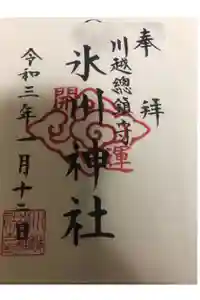 奉拝
川越總鎮守
氷川神社
開運
令和三年一月十二日